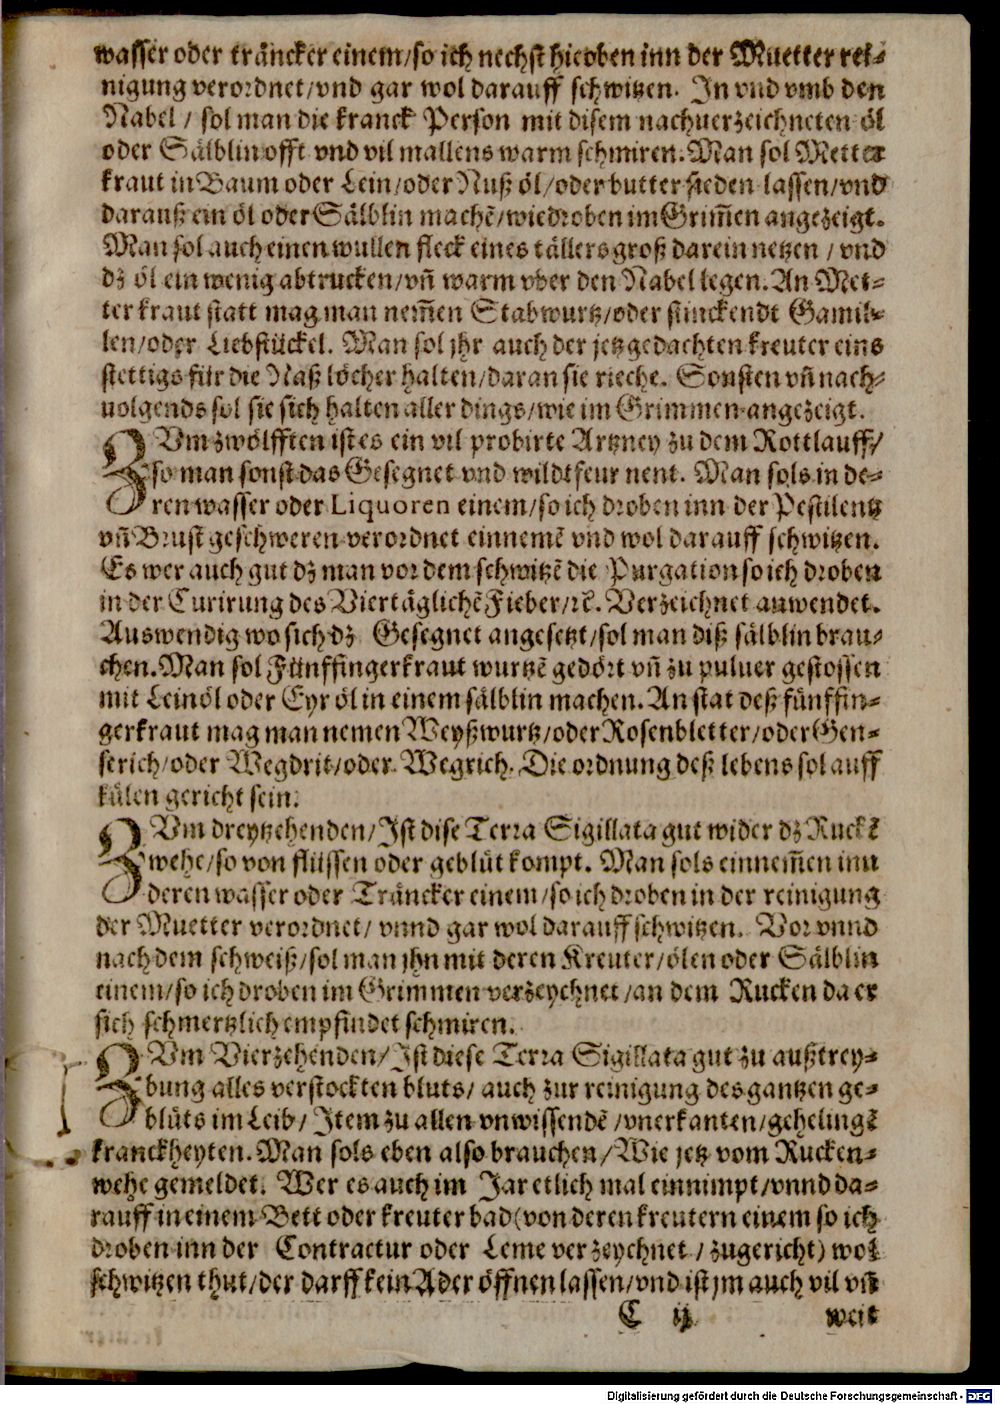 wasser oder träncker einem/so ich nechst hieoben inn der Muetter rei-
nigung verordnet/vnd gar wol darauff schwitzen. In vnd vmb den
Nabel / sol man die kranck Person mit disem nachuerzeichneten öl
oder Sälblin offt vnd vil mallens warm schmiren. Man sol Metter
kraut in Baum oder Lein/oder Nuß öl/oder butter sieden lassen/vnd
darauß ein öl oder Sälblin machẽ/wie droben im Grim̃en angezeigt.
Man sol auch einen wullen fleck eines tällers groß darein netzen / vnd
dz öl ein wenig abtrucken/vñ warm vber den Nabel legen. An Met-
ter kraut statt mag man nem̃en Stabwurtz/oder stinckendt Gamil-
len/oder Liebstückel. Man sol jhr auch der jetzgedachten kreuter eins
stettigs für die Naß löcher halten/daran sie rieche. Sonsten vñ nach-
uolgends sol sie sich halten aller dings/wie im Grimmen angezeigt.
ZVm zwölfften ist es ein vil probirte Artzney zu dem Rottlauff/
so man sonst das Gesegnet vnd wildtfeur nent. Man sols in de-
ren wasser oder Liquoren einem/so ich droben inn der Pestilentz
vñ Brust geschweren verordnet einnemẽ vnd wol darauff schwitzen.
Es wer auch gut dz man vor dem schwitzẽ die Purgation so ich droben
in der Curirung des Viertäglichẽ Fieber/ꝛc̃. Verzeichnet anwendet.
Auswendig wo sich dz Gesegnet angesetzt/sol man diß sälblin brau-
chen. Man sol Fünffingerkraut wurtzẽ gedört vñ zu puluer gestossen
mit Leinöl oder Eyr öl in einem sälblin machen. An stat deß fünffin-
gerkraut mag man nemen Weyßwurtz/oder Rosenbletter/oder Gen-
serich/oder Wegdrit/oder Wegrich. Die ordnung deß lebens sol auff
külen gericht sein.
ZVm dreytzehenden/Ist dise Terra Sigillata gut wider dz Ruckẽ
wehe/so von flüssen oder geblüt kompt. Man sols einnem̃en inn
deren wasser oder Träncker einem/so ich droben in der reinigung
der Muetter verordnet/ vnnd gar wol darauff schwitzen. Vor vnnd
nach dem schweiß/sol man jhn mit deren Kreuter/ölen oder Sälblin
einem/so ich droben im Grimmen verzeychnet/an dem Rucken da er
sich schmertzlich empfindet schmiren.
ZVm Vierzehenden/Ist diese Terra Sigillata gut zu außtrey-
bung alles verstockten bluts/ auch zur reinigung des gantzen ge-
blüts im Leib/ Item zu allen vnwissendẽ/vnerkanten/gehelingẽ
kranckheyten. Man sols eben also brauchen/Wie jetz vom Rucken-
wehe gemeldet. Wer es auch im Jar etlich mal einnimpt/vnnd da-
rauff in einem Bett oder kreuter bad (von deren kreutern einem so ich
droben inn der Contractur oder Leme verzeychnet / zugericht) wol
schwitzen thut/der darff kein Ader öffnen lassen/vnd ist jm auch vil vñ
C ij weit
Digitalisierung gefördert durch die Deutsche Forschungsgemeinschaft - DFG